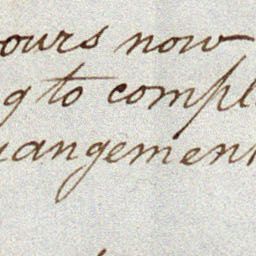 ours now
g to compl
rangement